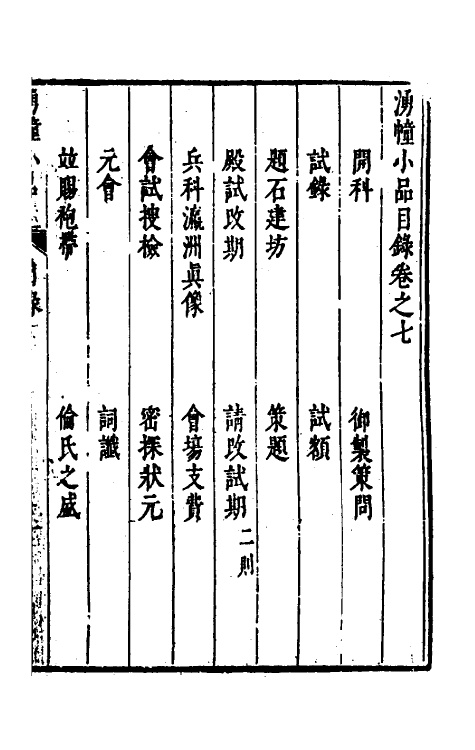 湧幢小品目錄卷之七
開科　御製策問
試錄　試額
題石建坊　策題
殿試改期　請改試期二則
兵科瀛洲眞像　會場支費
會試搜檢　密探狀元
元會　詞讖
並賜袍帶　倫氏之盛